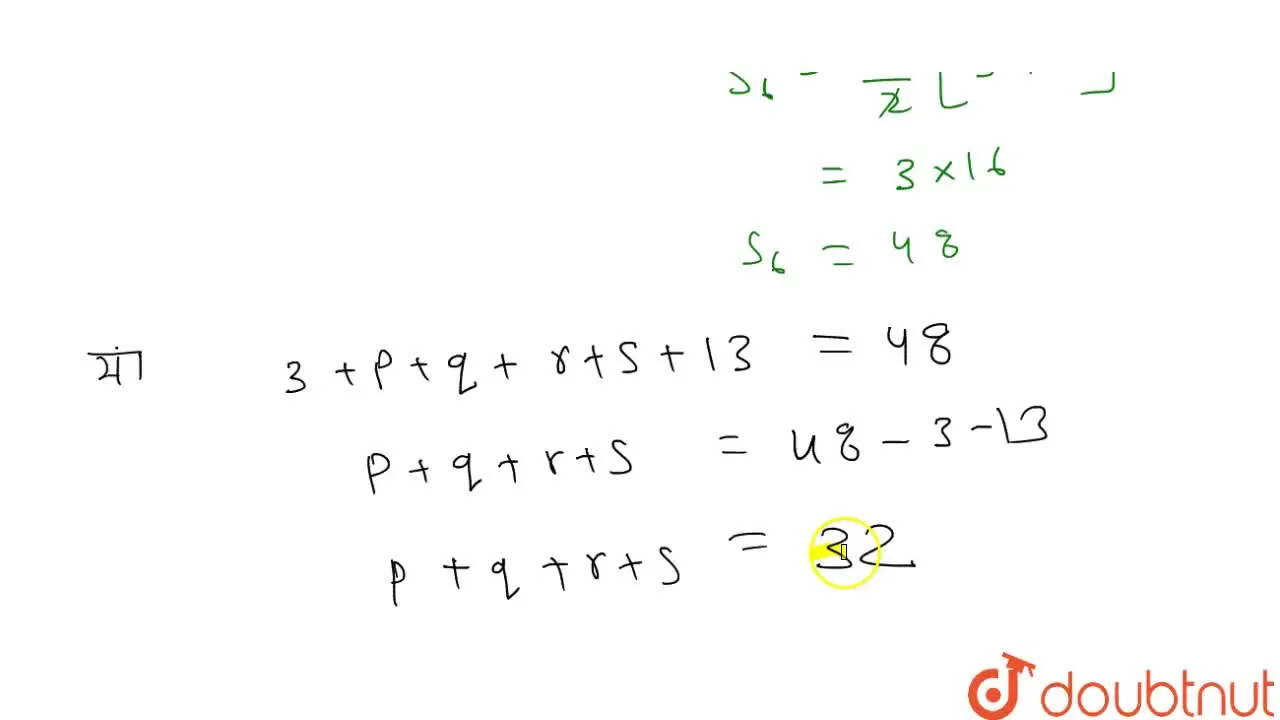 = 3 × 16
S₆ = 48
यां 3 + p + q + r + s + 13 = 48
p + q + r + s = 48 - 3 - 13
p + q + r + s = 32
doubtnut